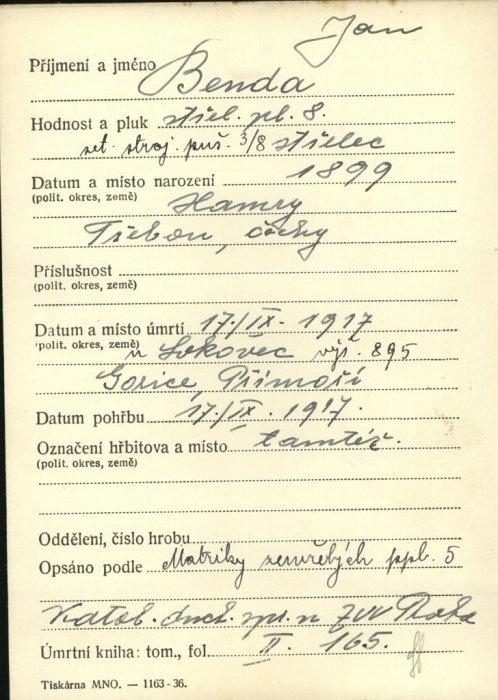 Jan
Příjmení a jméno Benda
Hodnost a pluk střel. pl. 8.
set. stroj. puš. 3/8 střelec
Datum a místo narození 1899
(polit. okres, země) Hamry
Třeboň, Čechy
Příslušnost
(polit. okres, země)
Datum a místo úmrtí 17./IX. 1917
(polit. okres, země) u Lokovec výš. 895
Gorice, Přímoří
Datum pohřbu 17./IX. 1917.
Označení hřbitova a místo tamtéž.
(polit. okres, země)
Oddělení, číslo hrobu
Opsáno podle Matriky zemřelých ppl. 5
Katol. duch. spr. n Praha
Úmrtní kniha: tom., fol. II. 165.
Tiskárna MNO. — 1163-36.